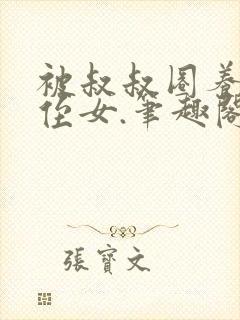 被叔叔圈养
侄女.笔趣阁
張寶文